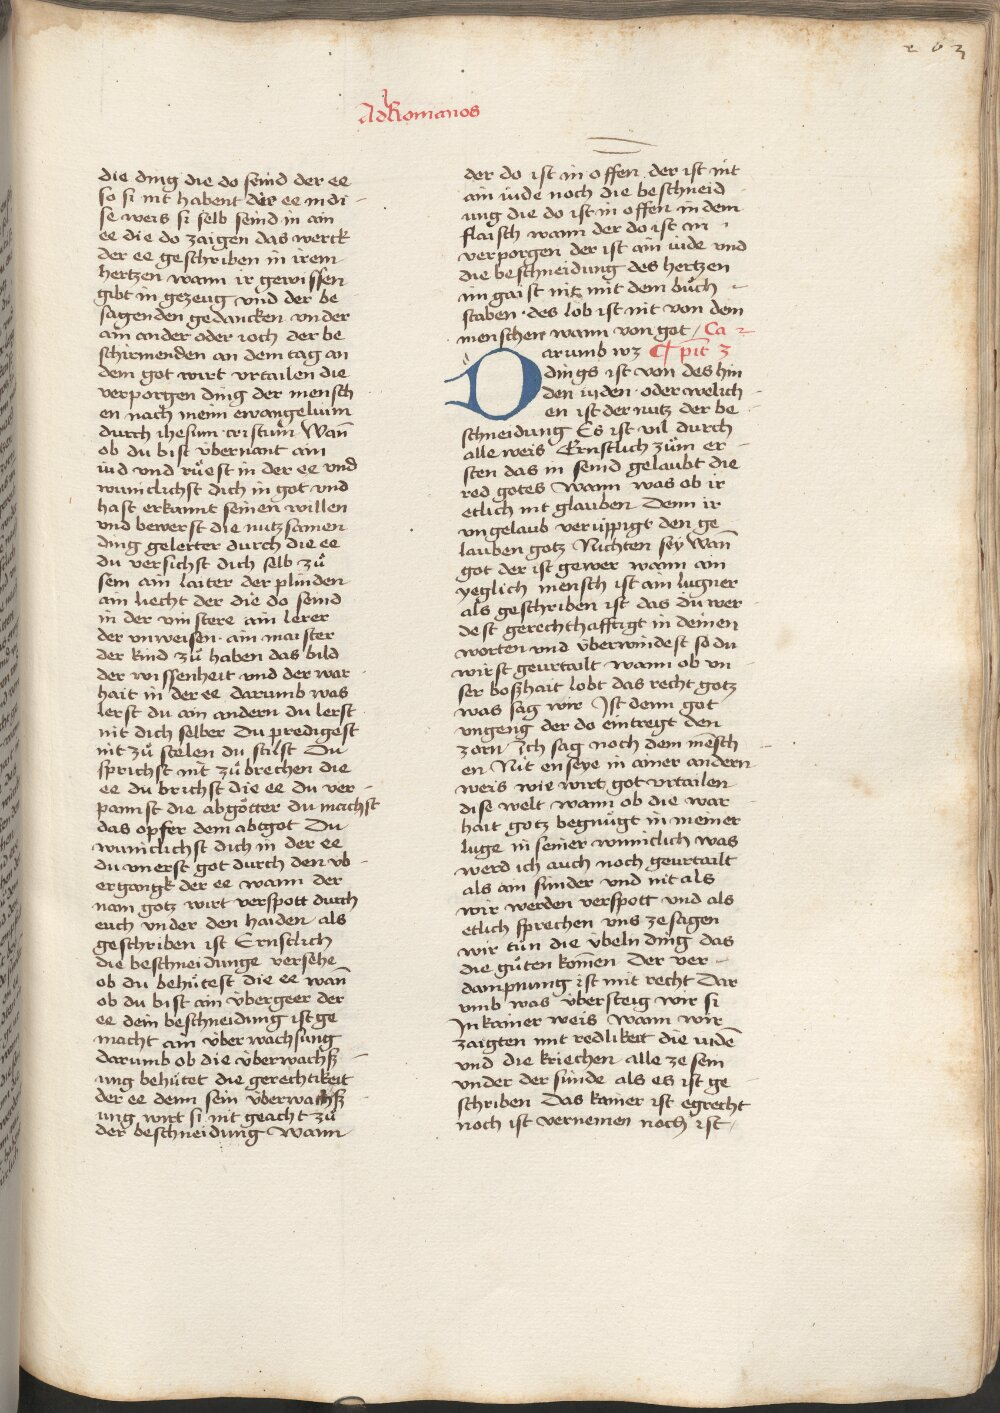 263
Ad Romanos
die ding die do seind der ee
so si nit habent der ee in di-
se weis si selb seind in ain
ee die do zaigen das werck
der ee geschriben in irem
hertzen wann ir gewissen
gibt in gezeug vnd der be
sagenden gedancken vnder
ain ander oder ioch der be
schirmenden an dem tag an
dem got wirt vrtailen die
verporgen ding der mensch
en nach meim ewangelium
durch ihesum cristum Wañ
ob du bist vbernant ain
iud vnd růest in der ee vnd
wuniclichst dich in got vnd
hast erkannt seinen willen
vnd bewerst die nutzsamen
ding gelerter durch die ee
du versichst dich selb zů
sein ain laiter der plinden
ain liecht der die do seind
in der vinstere ain lerer
der vnweisen · ain maister
der kind zů haben das bild
der wissenheit vnd der war
hait in der ee darumb was
lerst du ain andern du lerst
nit dich selber Du predigest
nit zů stelen du stilst Du
sprichst nit zůbrechen die
ee du brichst die ee du ver-
pannst die abgötter du machst
das opfer dem abtgot Du
wuniclichst dich in der ee
du vnerst got durch den vb-
ergangk der ee wann der
nam gotz wirt verspott durch
euch vnder den haiden als
geschriben ist Ernstlich
die beschneidunge versehe
ob du behütest die ee wañ
ob du bist ain vbergeer der
ee dein beschneidung ist ge
macht ain vberwachsung
darumb ob die vberwachß-
ung behütet die gerechtikeit
der ee denn sein vberwachß
ung wirt si nit geacht zů
der beschneidung Wann
der do ist in offen · der ist nit
ain iude noch die beschneid
ung die do ist in offen in dem
flaisch wann der do ist in
verporgen der ist ain iude vnd
die beschneidung des hertzen
im gaist nit mit dem bůch-
staben · des lob ist nit von dem
menschen wann von got / Ca-
Darumb wz ¶ pit 3
dings ist von deshin
den iuden · oder welich-
en ist der nutz der be-
schneidung Es ist vil durch
alle weis Ernstlich zům er-
sten das in seind gelaubt die
red gotes Wann was ob ir
etlich nit glauben Denn ir
vngelaub verüppigt den ge
lauben gotz Nichten sey Wañ
got der ist gewer wann ain
yeglich mensch ist ain lugner
als geschriben ist das du wer-
dest gerechthafftigt in deinen
worten vnd vberwindest so du
wirst geurtailt wann ob vn
ser boßhait lobt das recht gotz
was sag wir Ist denn got
vngeng der do eintregt den
zorn Ich sag noch dem mẽsch
en Nit enseye in ainer andern
weis wie wirt got vrtailen
dise welt wann ob die war-
hait gotz begnügt in meiner
luge in seiner wuniclich was
werd ich auch noch geurtailt
als ain sünder vnd nit als
wir werden verspott vnd als
etlich sprechen vns ze sagen
wir tůn die vbeln ding das
die gůten kom̃en Der ver-
dampnung ist mit recht Dar
vmb was vbersteig wir si
In kainer weis Wann wir
zaigten mit redlikeit die iudẽ
vnd die kriechen alle ze sein
vnder der sünde als es ist ge
schriben Das kainer ist egrecht
noch ist vernemen noch ist